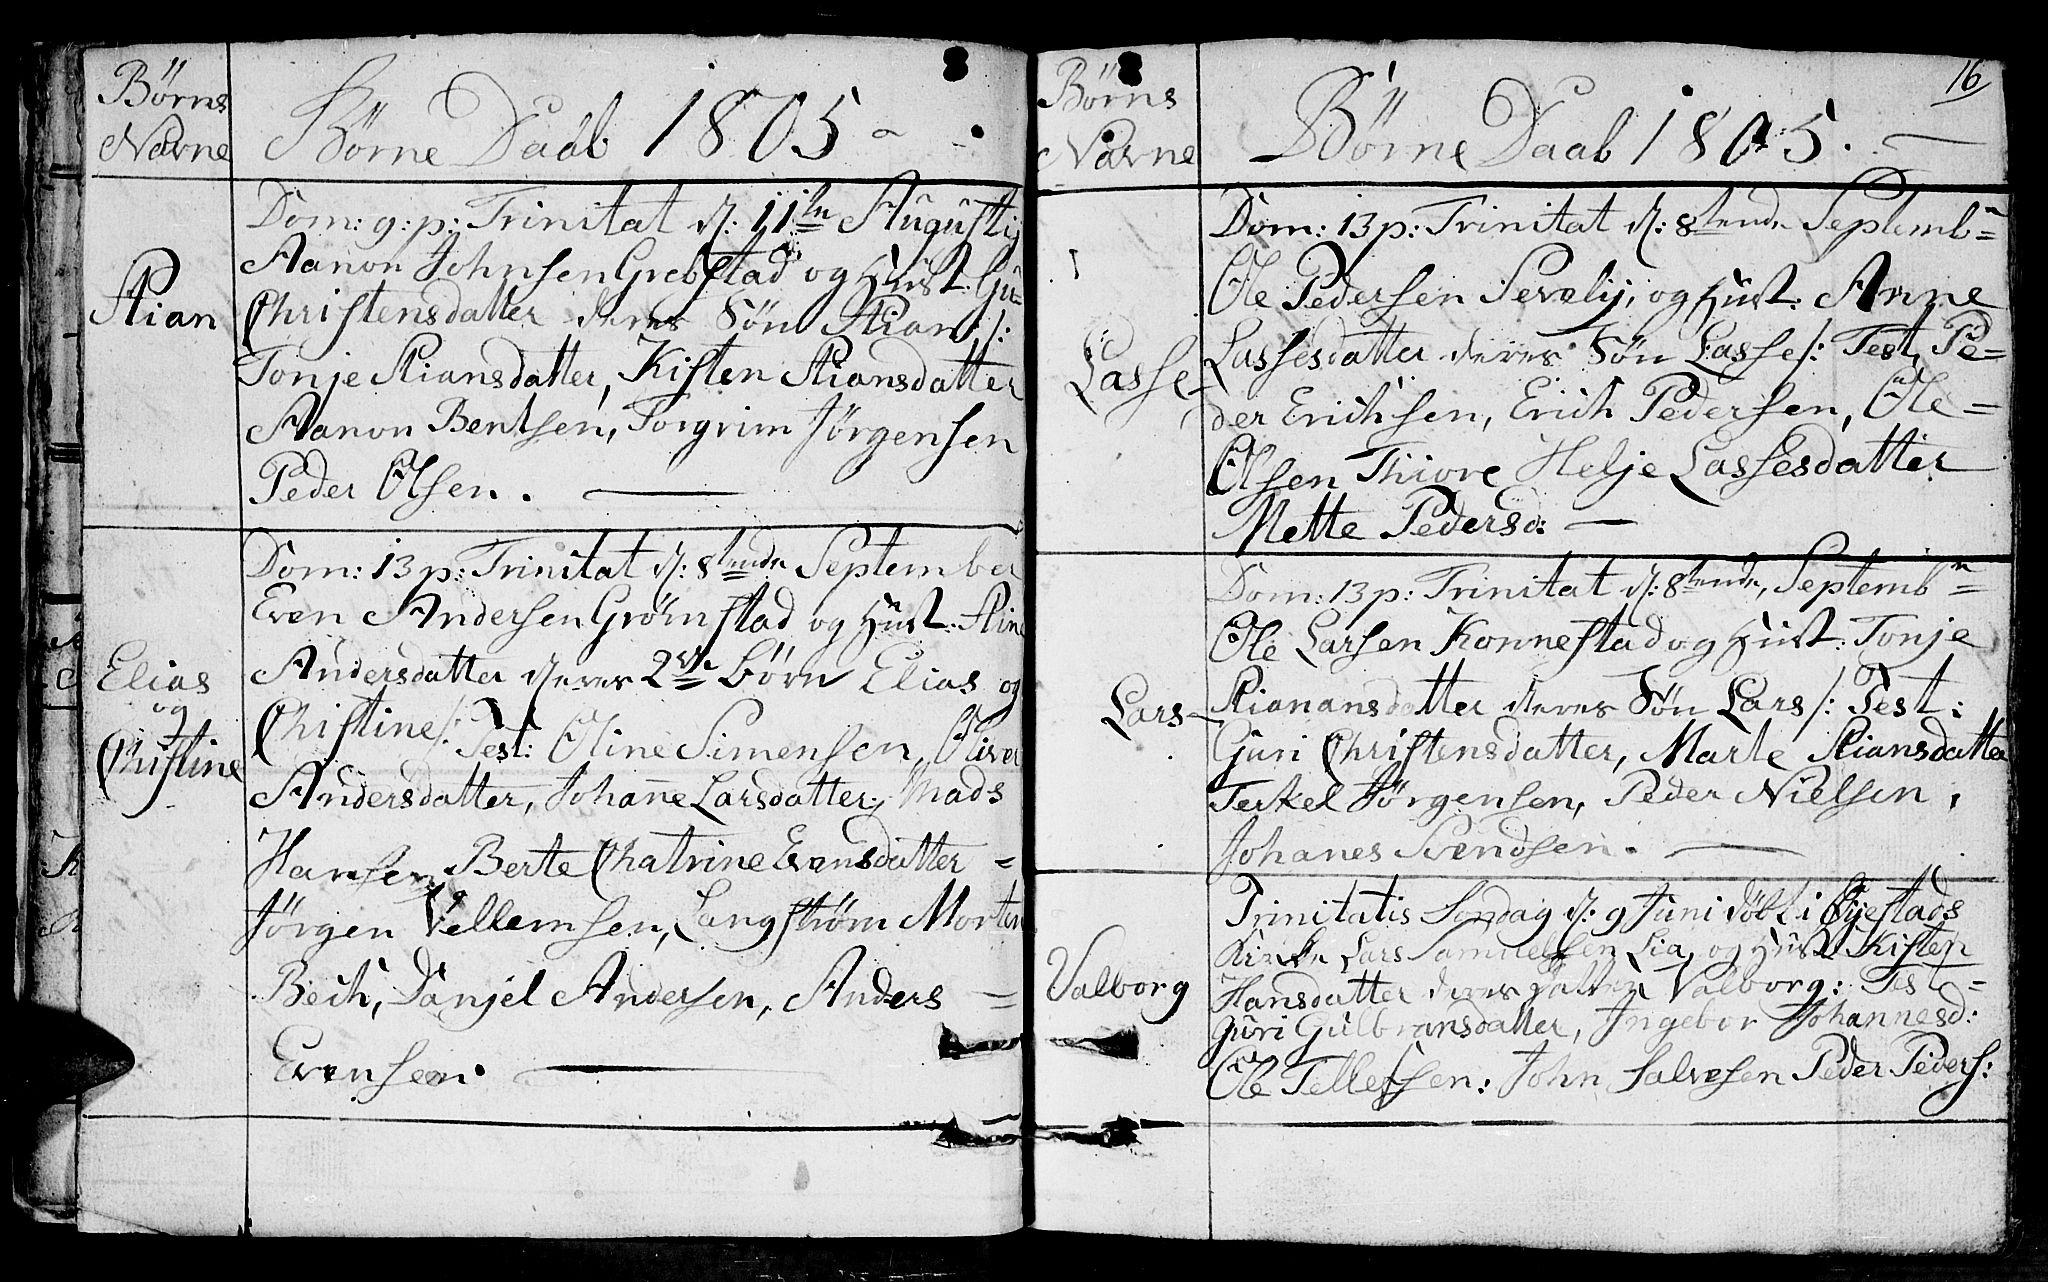 Børns
Navne
Børne Daab 1805
Stian
Dom: 9: p: Trinitat d: 11te Augustij
Aanon Johnsen Grebstad og Hust: Gu=
Christensdatter deres Søn Stian /:
Tonje Stiansdatter, Kisten Stiansdatter
Aanon Bentsen, Torgrim Jørgensen
Peder Olsen.
Elias
og
Christine
Dom: 13 p: Trinitat d: 8tende September
Even Andersen Grømstad og Hust: Stine
Andersdatter deres 2de Børn Elias og
Christine /: Test: Oline Simensen, Oliver
Andersdatter, Johanne Larsdatter, Mads
Hansen Berte Chatrine Evensdatter =
Jørgen Vellemsen, Langstrøm Morten
Bech, Danjel Andersen, Anders =
Evensen.
16
Børns
Navne
Børne Daab 1805.
Lasse
Dom: 13 p: Trinitat d: 8tende Septemb=
Ole Pedersen Sevely, og Hust: Anne
Lassesdatter deres Søn Lasse /: Test, Pe=
der Erichsen, Erich Pedersen, Ole =
Olsen Thiore Helje Lassesdatter
Mette Pedersd:
Lars
Dom: 13 p: Trinitat d: 8tende, Septemb=
Ole Larsen Konnestad og Hust: Tonje
Stianansdatter deres Søn Lars /: Test:
Guri Christensdatter, Marte Stiansdatter
Terkel Jørgensen, Peder Nielsen,
Johanes Svendsen.
Valborg
Trinitatis Søndag d: 9 Juni døbt i Øjestads
Kirke Lars Samuelsen Lia, og Hust Kisten
Hansdatter deres Datter Valborg: Test =
Guri Gulbransdatter, Ingebor Johannesd:
Ole Tellefsen: John Salvesen Peder Peders: